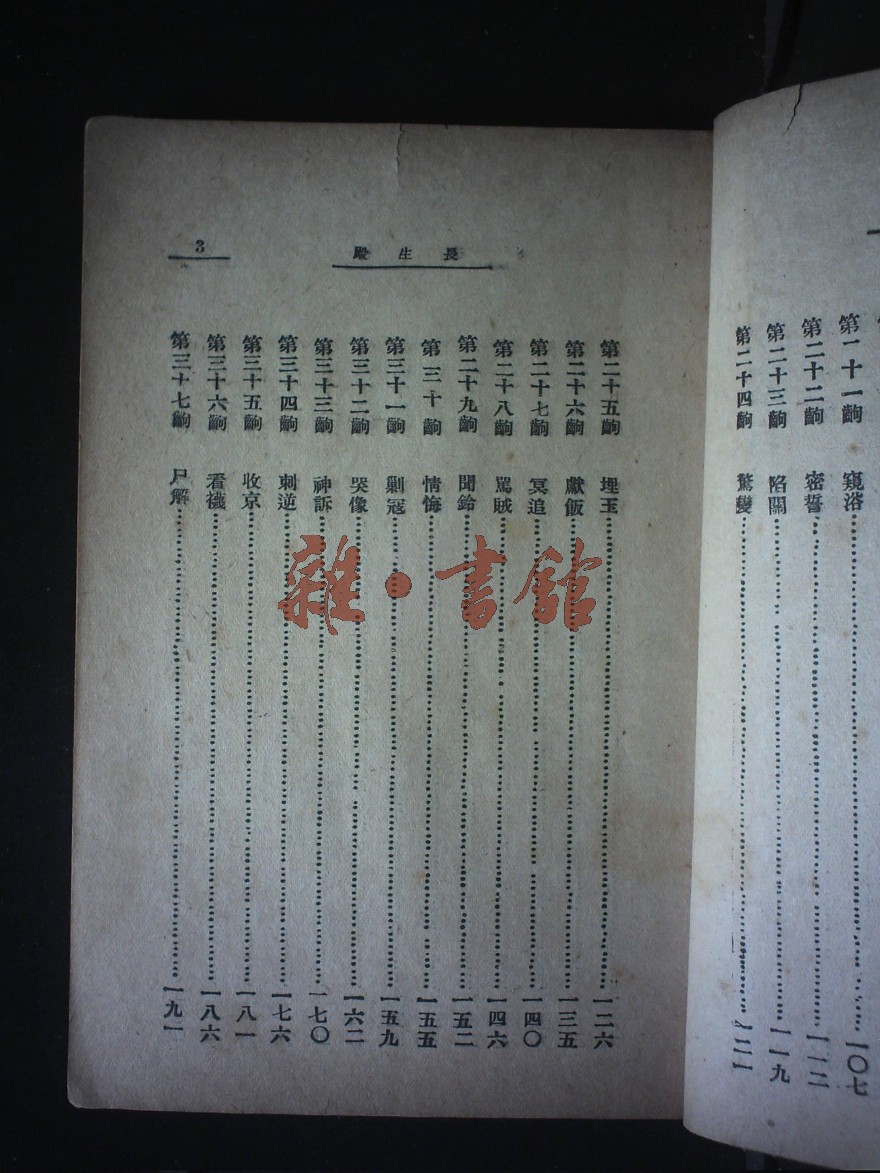 第二十一齣 窺浴 一〇七
第二十二齣 密誓 一一二
第二十三齣 陷關 一一九
第二十四齣 驚變 一二一
長生殿
3
第二十五齣 埋玉 一二六
第二十六齣 獻飯 一三五
第二十七齣 冥追 一四〇
第二十八齣 罵賊 一四六
第二十九齣 聞鈴 一五二
第三十齣 情悔 一五五
第三十一齣 剿寇 一五九
第三十二齣 哭像 一六二
第三十三齣 神訴 一七〇
第三十四齣 刺逆 一七六
第三十五齣 收京 一八一
第三十六齣 看襪 一八六
第三十七齣 尸解 一九一
雜·書館